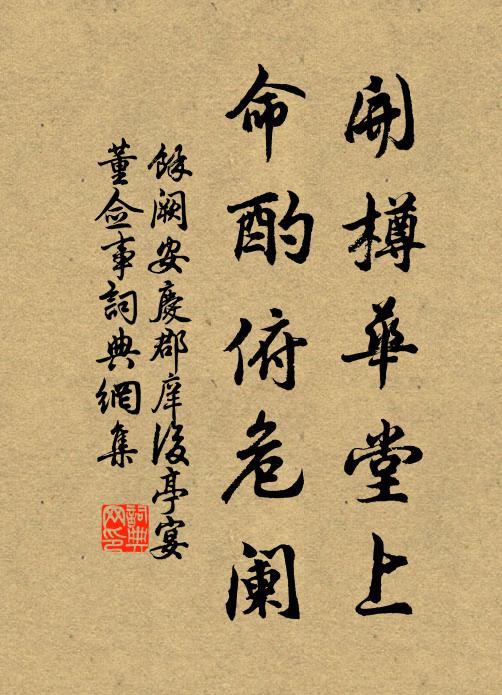 開樽華堂上
命酌俯危阑
餘阙安慶郡庠後亭宴
董佥事詞典網集
詞典網印